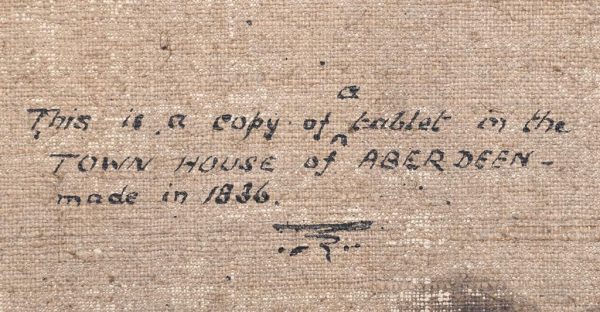 This is a copy of a tablet in the
TOWN HOUSE of ABERDEEN -
made in 1836.